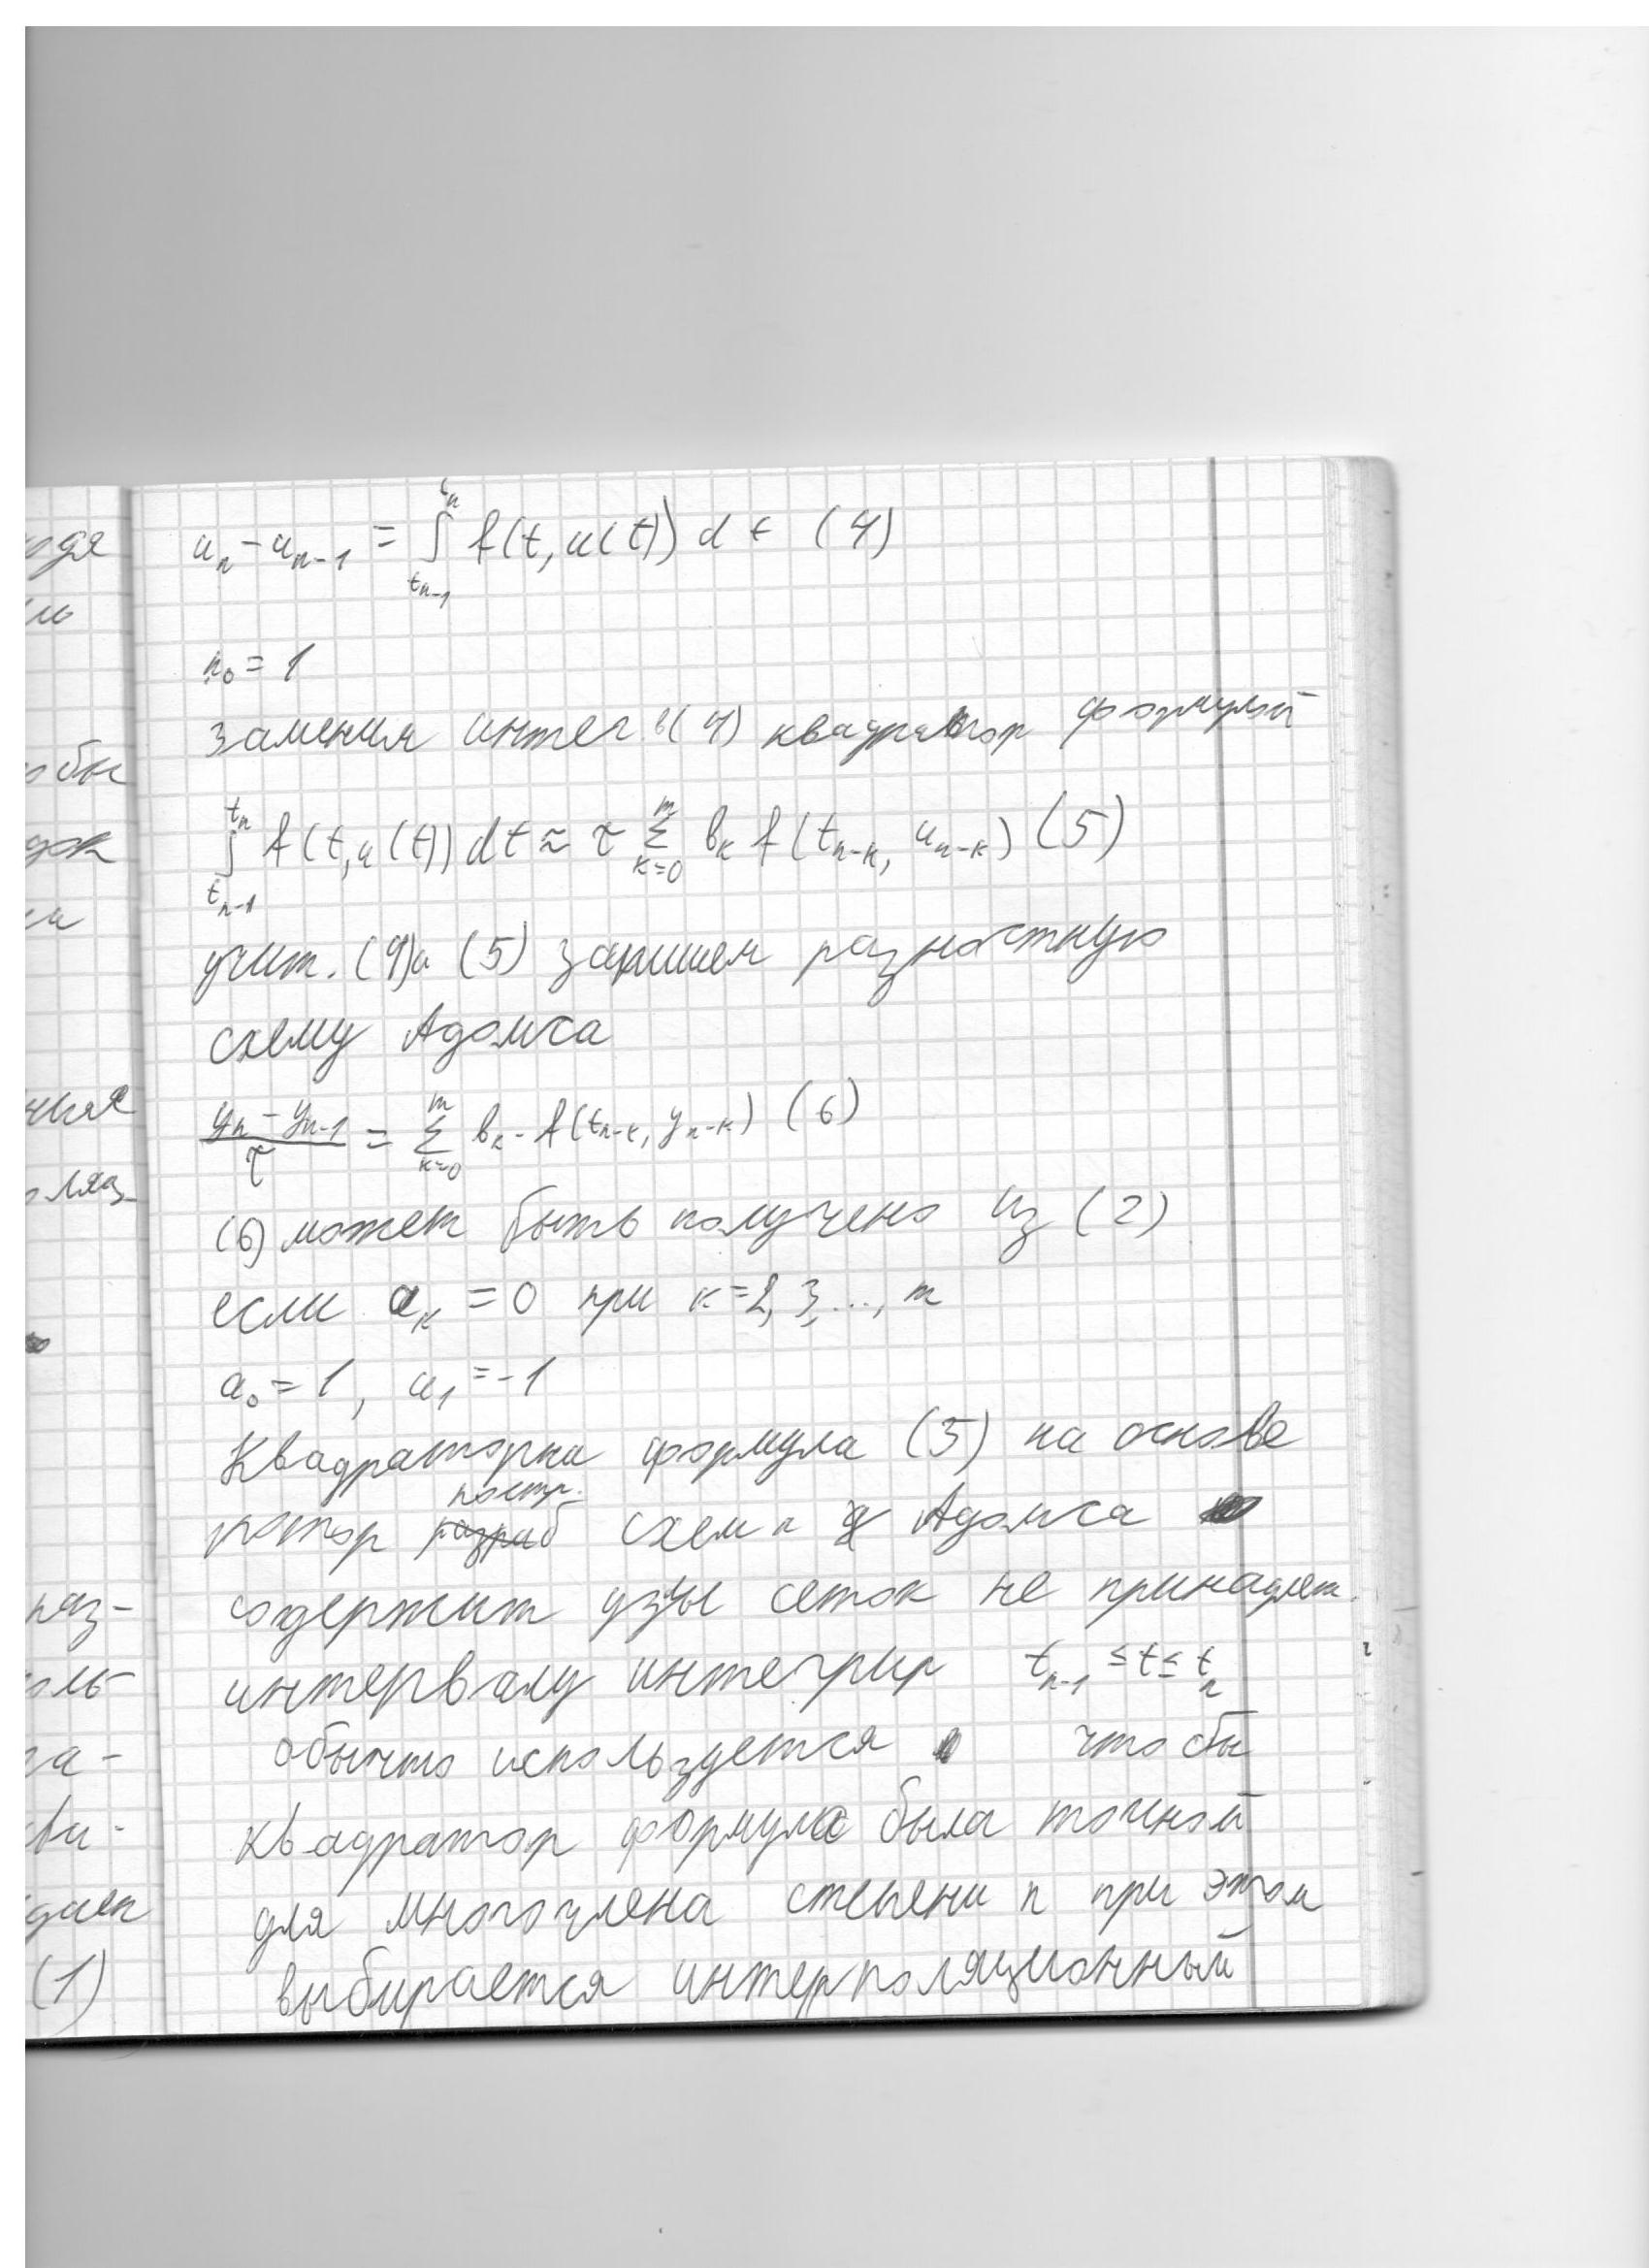 u_n - u_{n-1} = ∫_{t_{n-1}}^{t_n} f(t, u(t)) dt (4)
n_0 = 1
Заменим интег в (4) квадратор формулой
∫_{t_{n-1}}^{t_n} f(t, u(t)) dt ≈ τ Σ_{k=0}^{m} b_k f(t_{n-k}, u_{n-k}) (5)
учит. (4) и (5) запишем разностную
схему Адомса
(y_n - y_{n-1})/τ = Σ_{k=0}^{m} b_k - f(t_{n-k}, y_{n-k}) (6)
(6) может быть получено из (2)
если a_k = 0 при k=2, 3, ..., m
a_0 = 1, a_1 = -1
Квадраторна формула (5) на основе
котор постр. схем Адомса
содержит узлы сеток не принадлеж.
интервалу интегрир t_{n-1} ≤ t ≤ t_n
обычто используется что бы
квадратор формула была точной
для многочлена степени n при этом
выбирается интерполяционный
одя
обы
ляц-
раз-
оль
а-
ви-
(1)